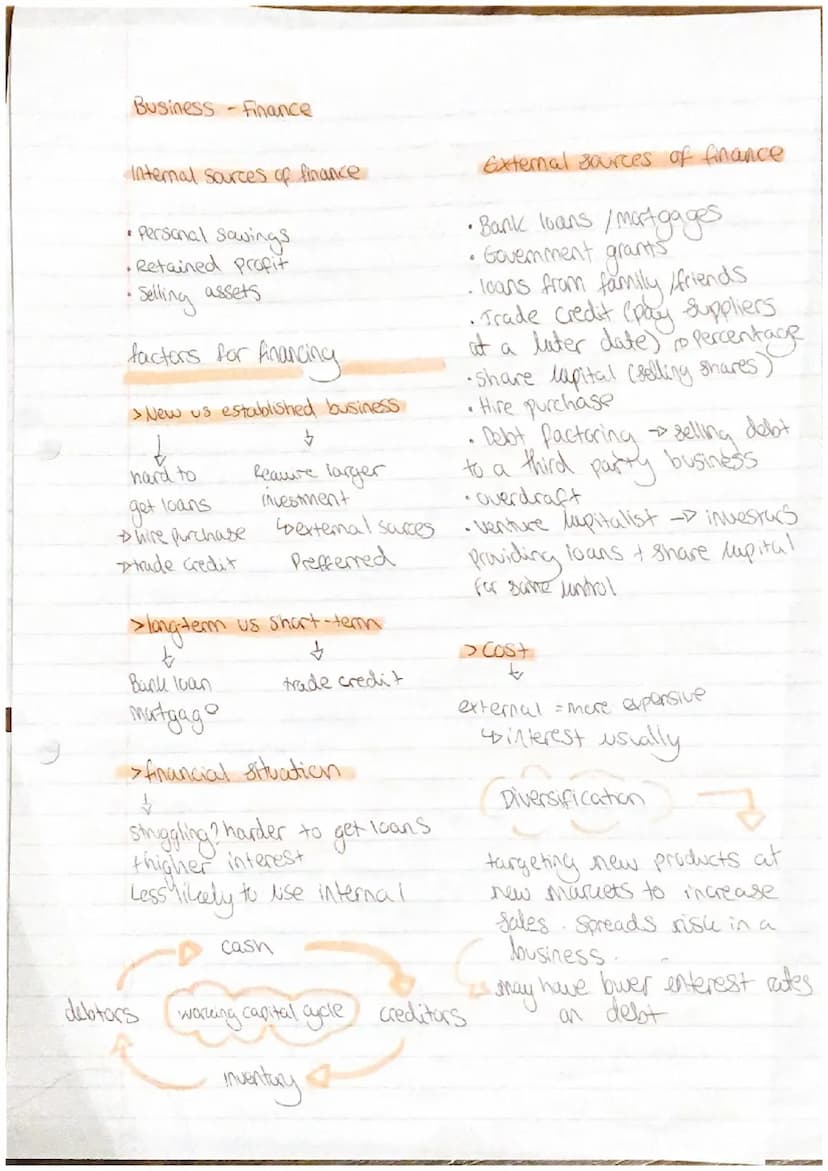 Business - Finance
Internal sources of finance
• Personal savings
• Retained profit
• Selling assets
factors for financing
> New vs established business
↓ ↓
hard to
get loans
→ hire purchase
→ trade credit
Require larger
investment
↳ external sources
Prefferred
> long-term vs short-term
↓ ↓
Bank loan
mortgage
trade credit
> financial situation
↓
struggling? harder to get loans
+ higher interest
Less likely to use internal
cash
debtors
working capital cycle
creditors
inventory
External sources of finance
• Bank loans / mortgages
• Government grants
• loans from family / friends
• Trade credit (pay suppliers
at a later date) → percentage
• share capital (selling shares)
• Hire purchase
• Debt factoring → selling debt
to a third party business
• overdraft
• venture capitalist → investors
providing loans + share capital
for some control
> Cost
↓
external = more expensive
↳ interest usually
Diversification
targeting new products at
new markets to increase
sales. spreads risk in a
business.
may have lower interest rates
on debt